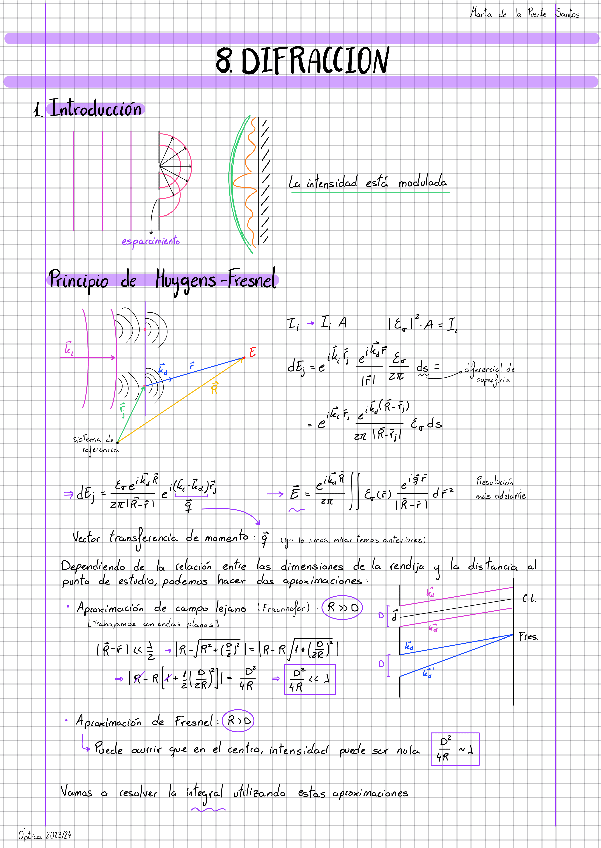 Marta de la Puente Santos
8. DIFRACCION
1. Introducción
La intensidad está modulada
esparcimiento
Principio de Huygens-Fresnel
I_i → I_i A    |ε_σ|²·A = I_i
k_i
k_d
r
E
R
r_j
sistema de referencia
dE_j = e^{i k_i r_j} e^{i k_d r}/|r| ε_σ/2π ds =
diferencial de superficie
= e^{i k_i r_j} e^{i k_d (R-r_j)}/2π|R-r_j| ε_σ ds
⇒ dE_j = ε_σ e^{i k_d R}/2π|R-r| e^{i(k_i-k_d) r_j}
q
→ E = e^{i k_d R}/2π ∬ ε_σ(r) e^{i q r}/|R-r| dr²
Resolución más adelante
Vector transferencia de momento: q
Dependiendo de la relación entre las dimensiones de la rendija y la distancia al
punto de estudio, podemos hacer dos aproximaciones:
· Aproximación de campo lejano (Fraunhofer): R >> D
(Trabajamos con ondas planas)
|R-r| << λ/2 → |R-√(R²+(D/2)²)| = |R-R√(1+(D/2R)²)|
⇒ |R-R[1+1/2(D/2R)²]| = D²/4R ⇒ D²/4R << λ
D
d
k_d
k_d
C.L.
D
k_d
k_d
Fres.
· Aproximación de Fresnel: R > D
Puede ocurrir que en el centro, intensidad puede ser nula D²/4R ~ λ
Vamos a resolver la integral utilizando estas aproximaciones
Óptica 2023/24